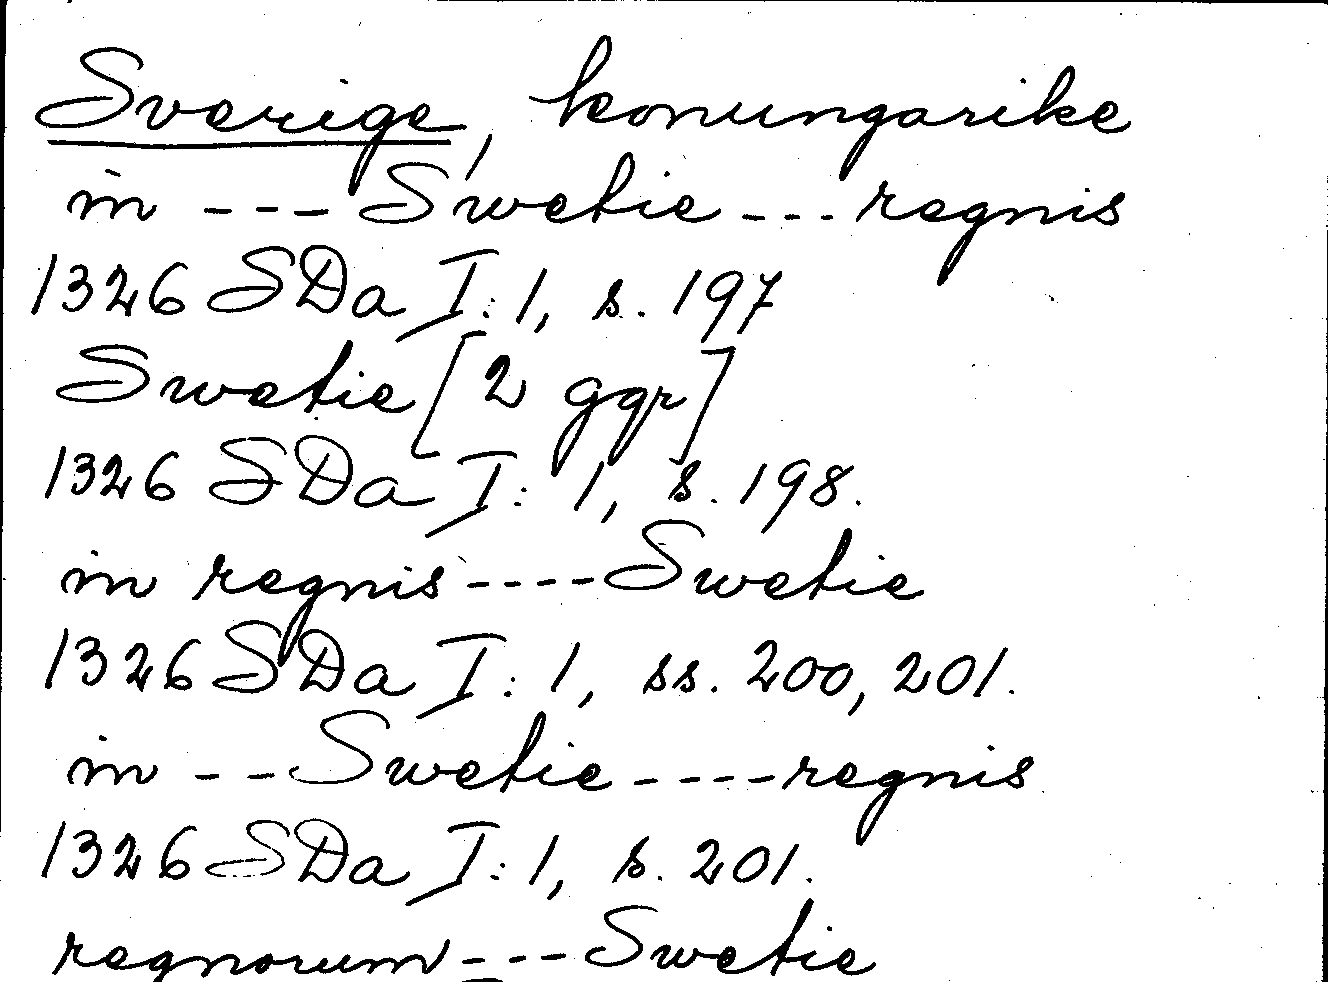 Sverige, konungarike
in --- Swetie --- regnis
1326 SDa I:1, s. 197
Swetie [2 ggr]
1326 SDa I:1, s. 198.
in regnis ---- Swetie
1326 SDa I:1, ss. 200, 201.
in -- Swetie ---- regnis
1326 SDa I:1, s. 201.
regnorum --- Swetie